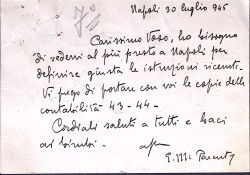 Napoli 30 luglio 945
Carissimo Vaso, ho bisogno
di vedervi al più presto a Napoli per
definire giusta le istruzioni ricevute.
Vi prego di portare con voi le copie della
contabilità 43-44-
Cordiali saluti a tutti e baci
ai bimbi.